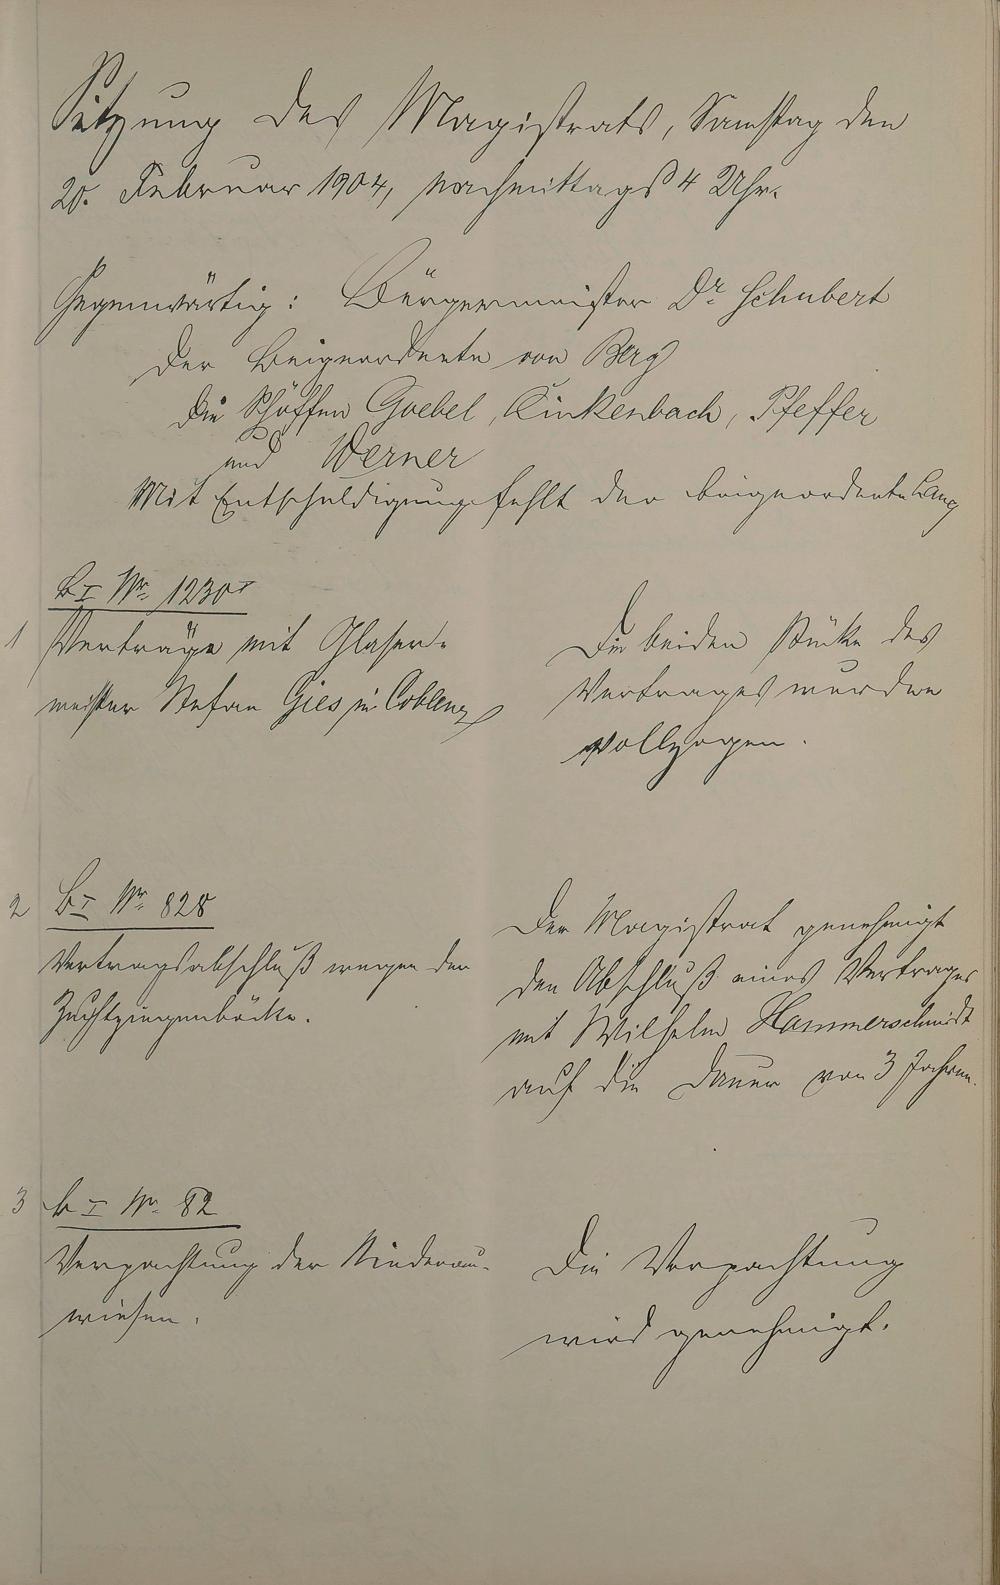 Sitzung des Magistrats, Samstag den
20. Februar 1904, nachmittags 4 Uhr.
Gegenwärtig: Bürgermeister Dr. Schubert
der Beigeordnete von Berg
die Schöffen Goebel, Kinkenbach, Pfeffer
und Werner
Mit Entschuldigung fehlt der Beigeordnete Lang
B I Nr. 1230
1 Verträge mit Glaser-
meister Stefan Gies in Coblenz
Die beiden Stücke des
Vertrages wurden
vollzogen.
2 B I Nr. 828
Vertragsabschluß wegen der
Zuchtziegenböcke.
Der Magistrat genehmigt
den Abschluß eines Vertrages
mit Wilhelm Hammerschmidt
auf die Dauer von 3 Jahren.
3 B I Nr. 82
Verpachtung der Niederau-
wiesen.
Die Verpachtung
wird genehmigt.